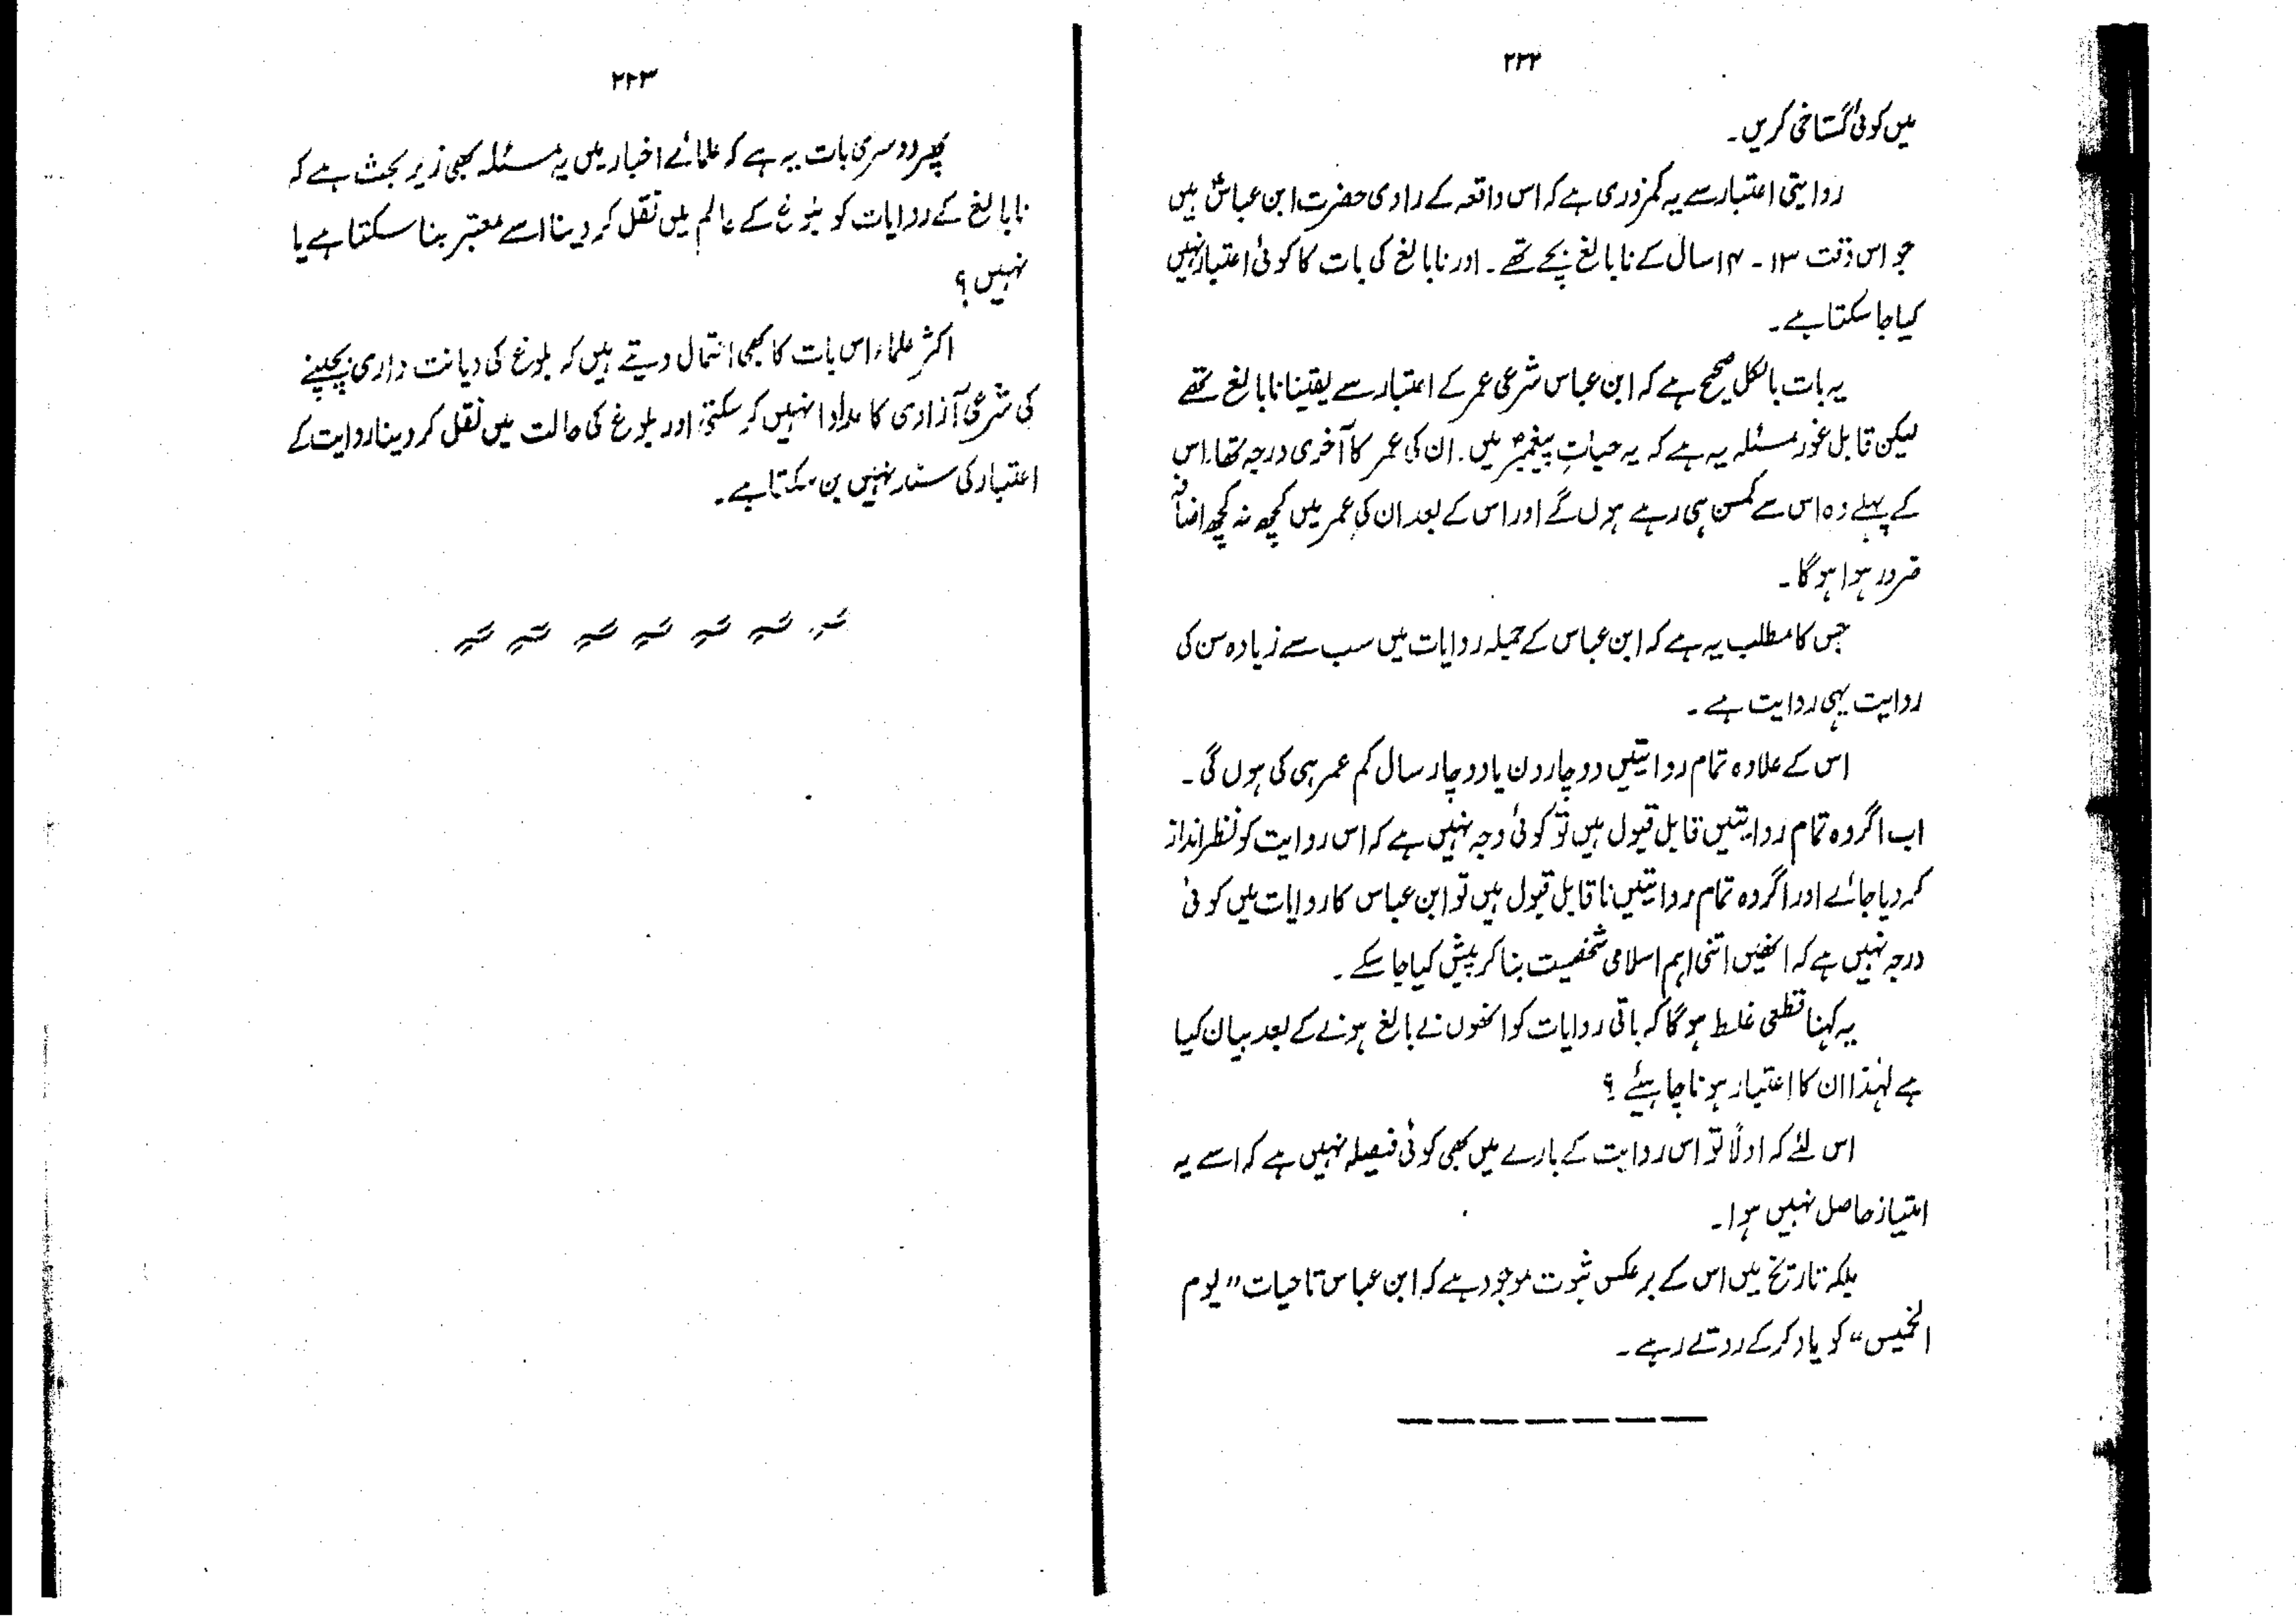 ۲۲۲
میں کوئی گستاخی کریں۔
روایتی اعتبار سے یہ کمزوری ہے کہ اس واقعہ کے راوی حضرت ابن عباسؓ ہیں
جو اس وقت ۱۳۔ ۱۴ سال کے نابالغ بچے تھے۔ اور نابالغ کی بات کا کوئی اعتبار نہیں
کیا جا سکتا ہے۔
یہ بات بالکل صحیح ہے کہ ابن عباس شرعی عمر کے اعتبار سے یقینا نابالغ تھے
لیکن قابل غور مسئلہ یہ ہے کہ یہ حیاتِ پیغمبرؐ میں۔ ان کی عمر کا آخری درجہ تھا۔ اس
کے پہلے وہ اس سے کمسن ہی رہے ہوں گے اور اس کے بعد ان کی عمر میں کچھ نہ کچھ اضافہ
ضرور ہوا ہوگا۔
جس کا مطلب یہ ہے کہ ابن عباس کے جملہ روایات میں سب سے زیادہ سن کی
روایت یہی روایت ہے۔
اس کے علاوہ تمام روایتیں دو چار دن یا دو چار سال کم عمر ہی کی ہوں گی۔
اب اگر وہ تمام روایتیں قابل قبول ہیں تو کوئی وجہ نہیں ہے کہ اس روایت کو نظر انداز
کر دیا جائے اور اگر وہ تمام روایتیں ناقابل قبول ہیں تو ابن عباس کا روایات میں کوئی
درجہ نہیں ہے کہ انھیں اتنی اہم اسلامی شخصیت بنا کر پیش کیا جا سکے۔
یہ کہنا قطعی غلط ہوگا کہ باقی روایات کو انھوں نے بالغ ہونے کے بعد بیان کیا
ہے لہٰذا ان کا اعتبار ہونا چاہیئے؟
اس لئے کہ اولًا تو اس روایت کے بارے میں بھی کوئی فیصلہ نہیں ہے کہ اسے یہ
امتیاز حاصل نہیں ہوا۔
بلکہ تاریخ میں اس کے برعکس ثبوت موجود ہے کہ ابن عباس تا حیات "یوم
الخمیس" کو یاد کر کے روتے رہے۔
۲۲۳
پھر دوسری بات یہ ہے کہ علمائے اخبار میں یہ مسئلہ بھی زیر بحث ہے کہ
نابالغ کے روایات کو بلوغ کے عالم میں نقل کر دینا اسے معتبر بنا سکتا ہے یا
نہیں؟
اکثر علماء اس بات کا بھی احتمال دیتے ہیں کہ بلوغ کی دیانت داری بچپنے
کی شرعی آزادی کا مداوا نہیں کر سکتی، اور بلوغ کی حالت میں نقل کر دینا روایت کے
اعتبار کی سند نہیں بن سکتا ہے۔